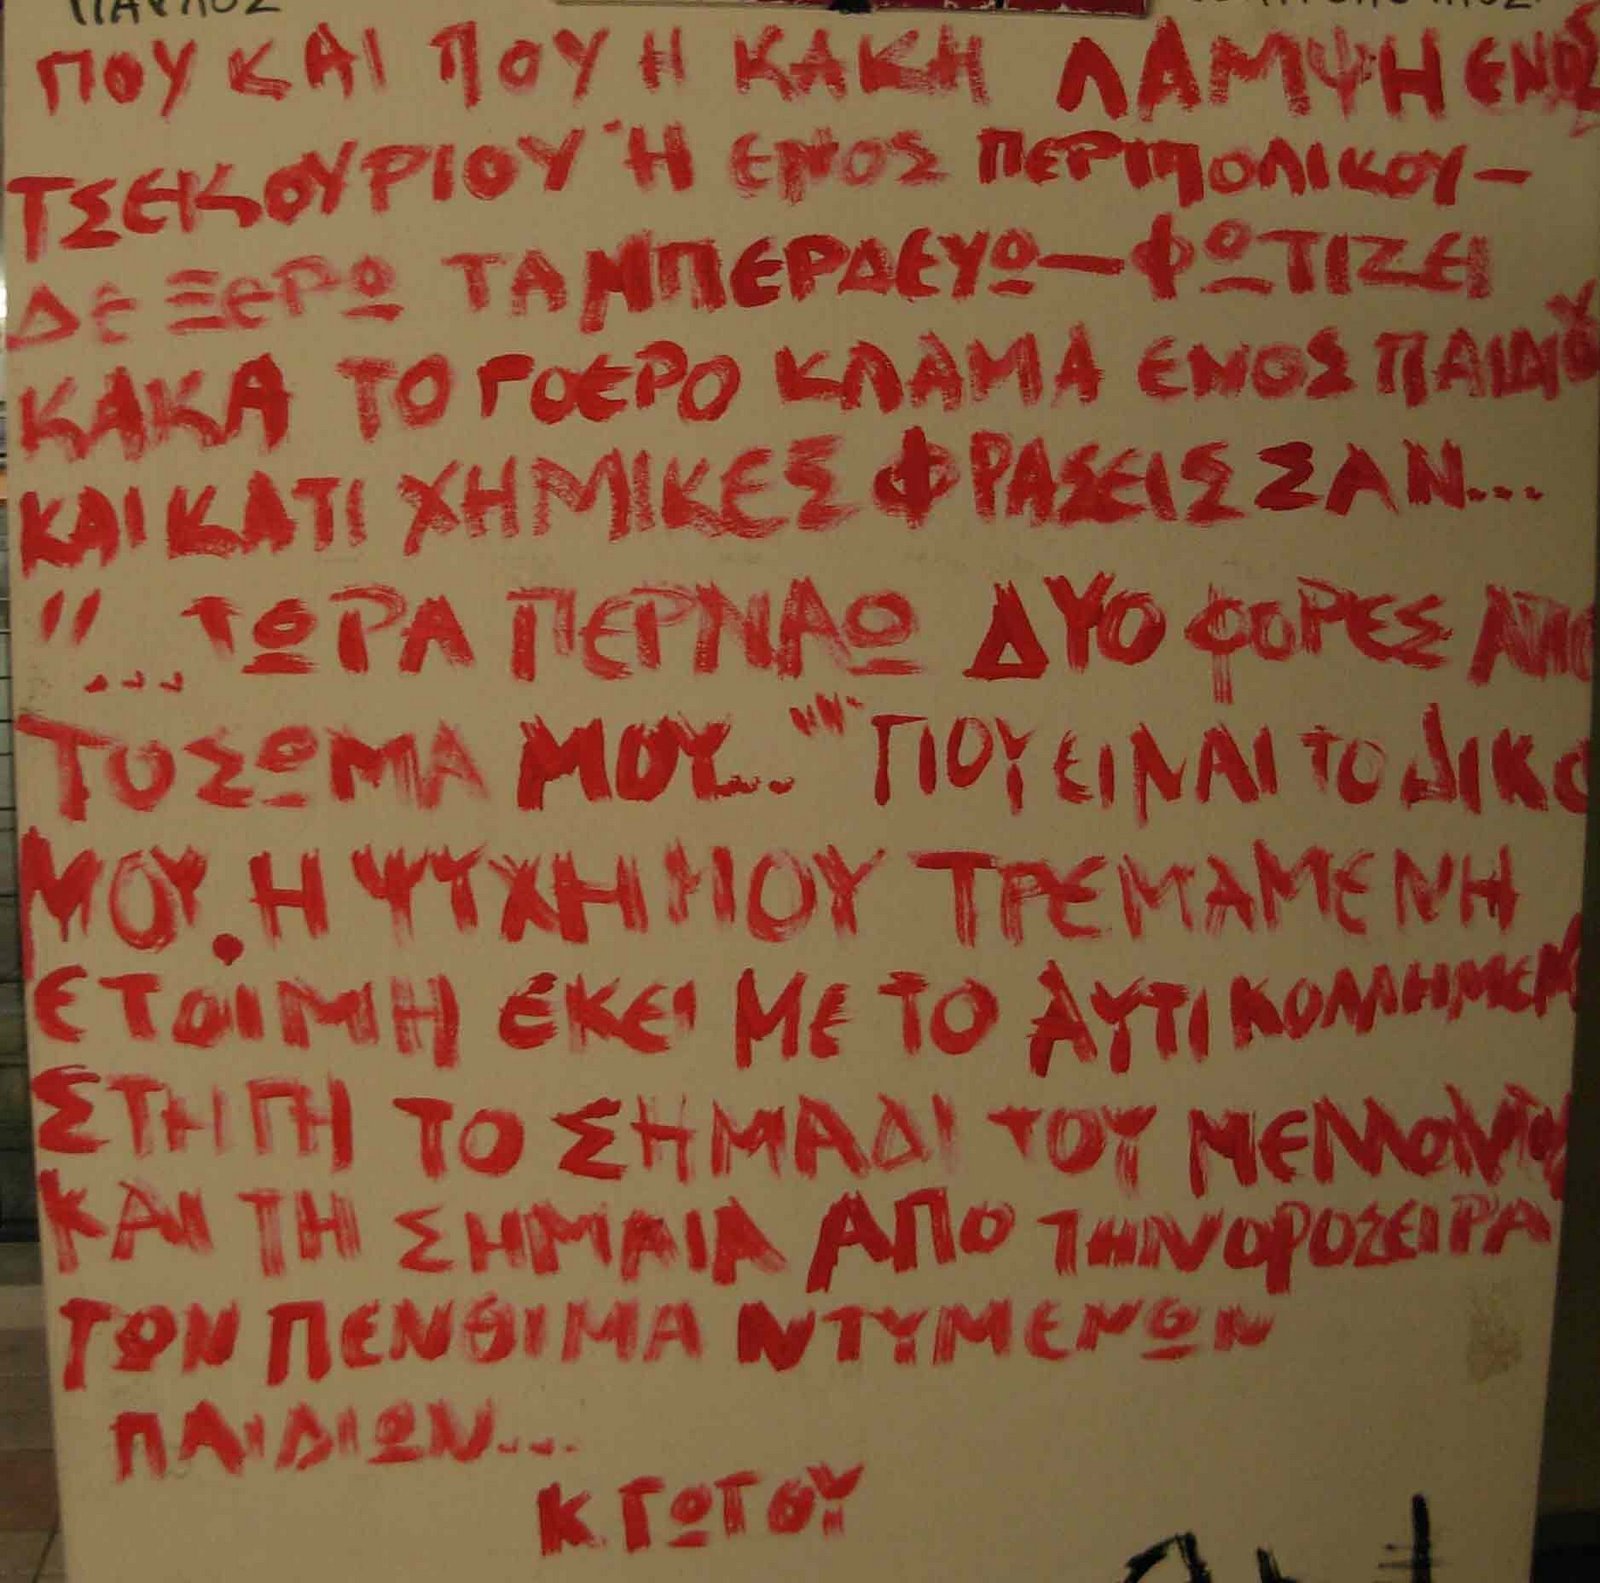 ΠΑΥΛΟΣ
ΠΟΥ ΚΑΙ ΠΟΥ Η ΚΑΚΗ ΛΑΜΨΗ ΕΝΟΣ
ΤΣΕΚΟΥΡΙΟΥ Ή ΕΝΟΣ ΠΕΡΙΠΟΛΙΚΟΥ –
ΔΕ ΞΕΡΩ ΤΑ ΜΠΕΡΔΕΥΩ – ΦΩΤΙΖΕΙ
ΚΑΚΑ ΤΟ ΓΟΕΡΟ ΚΛΑΜΑ ΕΝΟΣ ΠΑΙΔΙΟΥ
ΚΑΙ ΚΑΤΙ ΧΗΜΙΚΕΣ ΦΡΑΣΕΙΣ ΣΑΝ...
"... ΤΩΡΑ ΠΕΡΝΑΩ ΔΥΟ ΦΟΡΕΣ ΑΠΟ
ΤΟ ΣΩΜΑ ΜΟΥ..." ΠΟΥ ΕΙΝΑΙ ΤΟ ΔΙΚΟ
ΜΟΥ. Η ΨΥΧΗ ΜΟΥ ΤΡΕΜΑΜΕΝΗ
ΕΤΟΙΜΗ ΕΚΕΙ ΜΕ ΤΟ ΑΥΤΙ ΚΟΛΛΗΜΕΝΟ
ΣΤΗ ΓΗ ΤΟ ΣΗΜΑΔΙ ΤΟΥ ΜΕΛΛΟΝΤΟΣ
ΚΑΙ ΤΗ ΣΗΜΑΙΑ ΑΠΟ ΤΗΝ ΟΡΟΣΕΙΡΑ
ΤΩΝ ΠΕΝΘΙΜΑ ΝΤΥΜΕΝΩΝ
ΠΑΙΔΙΩΝ...
Κ. ΓΩΓΟΥ